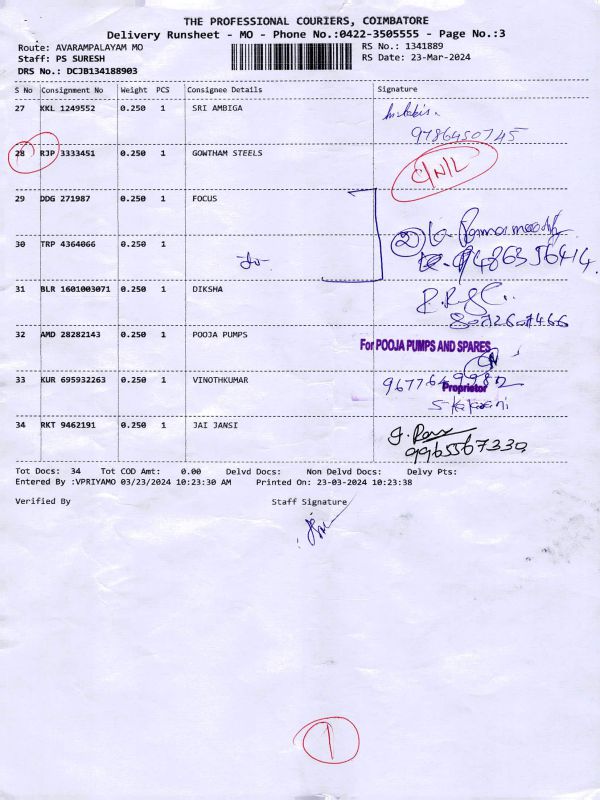 THE PROFESSIONAL COURIERS, COIMBATORE
Delivery Runsheet - MO - Phone No.:0422-3505555 - Page No.:3
Route: AVARAMPALAYAM MO
RS No.: 1341889
Staff: PS SURESH
RS Date: 23-Mar-2024
DRS No.: DCJB134188903
S No Consignment No Weight PCS Consignee Details Signature
27 KKL 1249552 0.250 1 SRI AMBIGA
9786450745
28 RJP 3333451 0.250 1 GOWTHAM STEELS C/N/L
29 DDG 271987 0.250 1 FOCUS
30 TRP 4364066 0.250 1
9486356414
31 BLR 1601003071 0.250 1 DIKSHA
32 AMD 28282143 0.250 1 POOJA PUMPS
For POOJA PUMPS AND SPARES
33 KUR 695932263 0.250 1 VINOTHKUMAR
Proprietor
34 RKT 9462191 0.250 1 JAI JANSI
9965567330
Tot Docs: 34 Tot COD Amt: 0.00 Delvd Docs: Non Delvd Docs: Delvy Pts:
Entered By :VPRIYAMO 03/23/2024 10:23:30 AM Printed On: 23-03-2024 10:23:38
Verified By Staff Signature
1